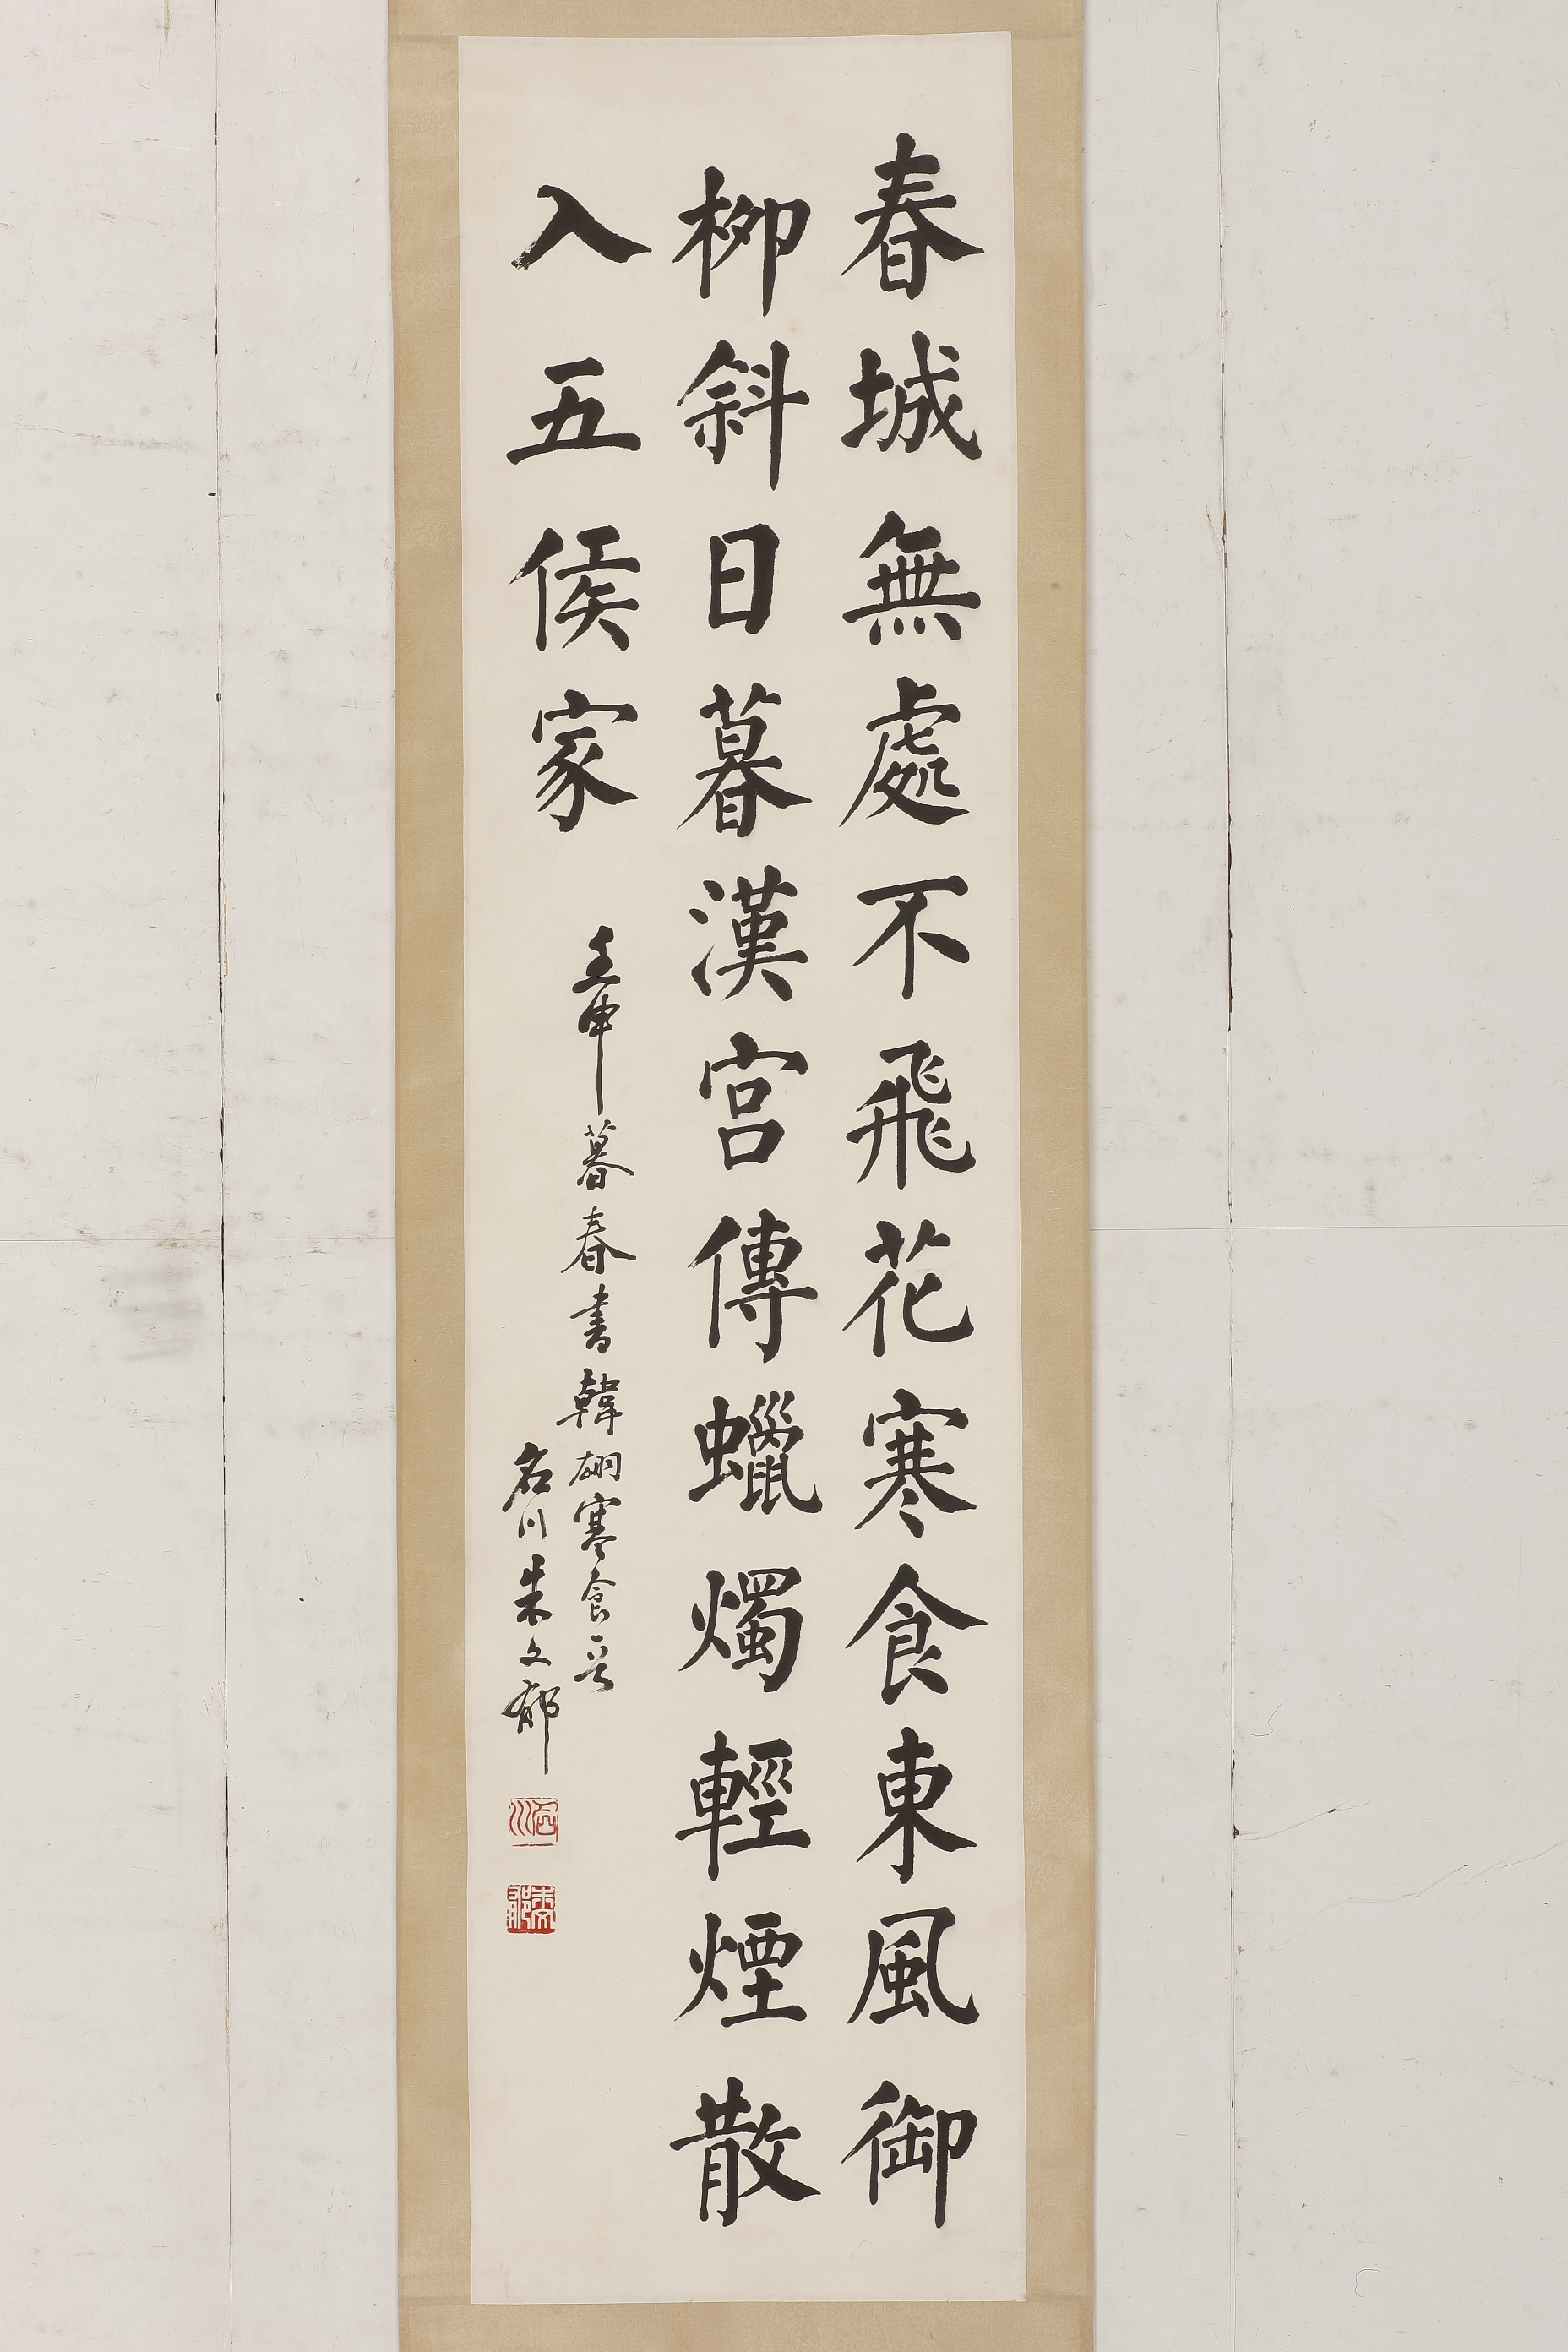 春城無處不飛花寒食東風御
柳斜日暮漢宮傳蠟燭輕煙散
入五侯家
壬申暮春書韓翃寒食
名川朱文郁